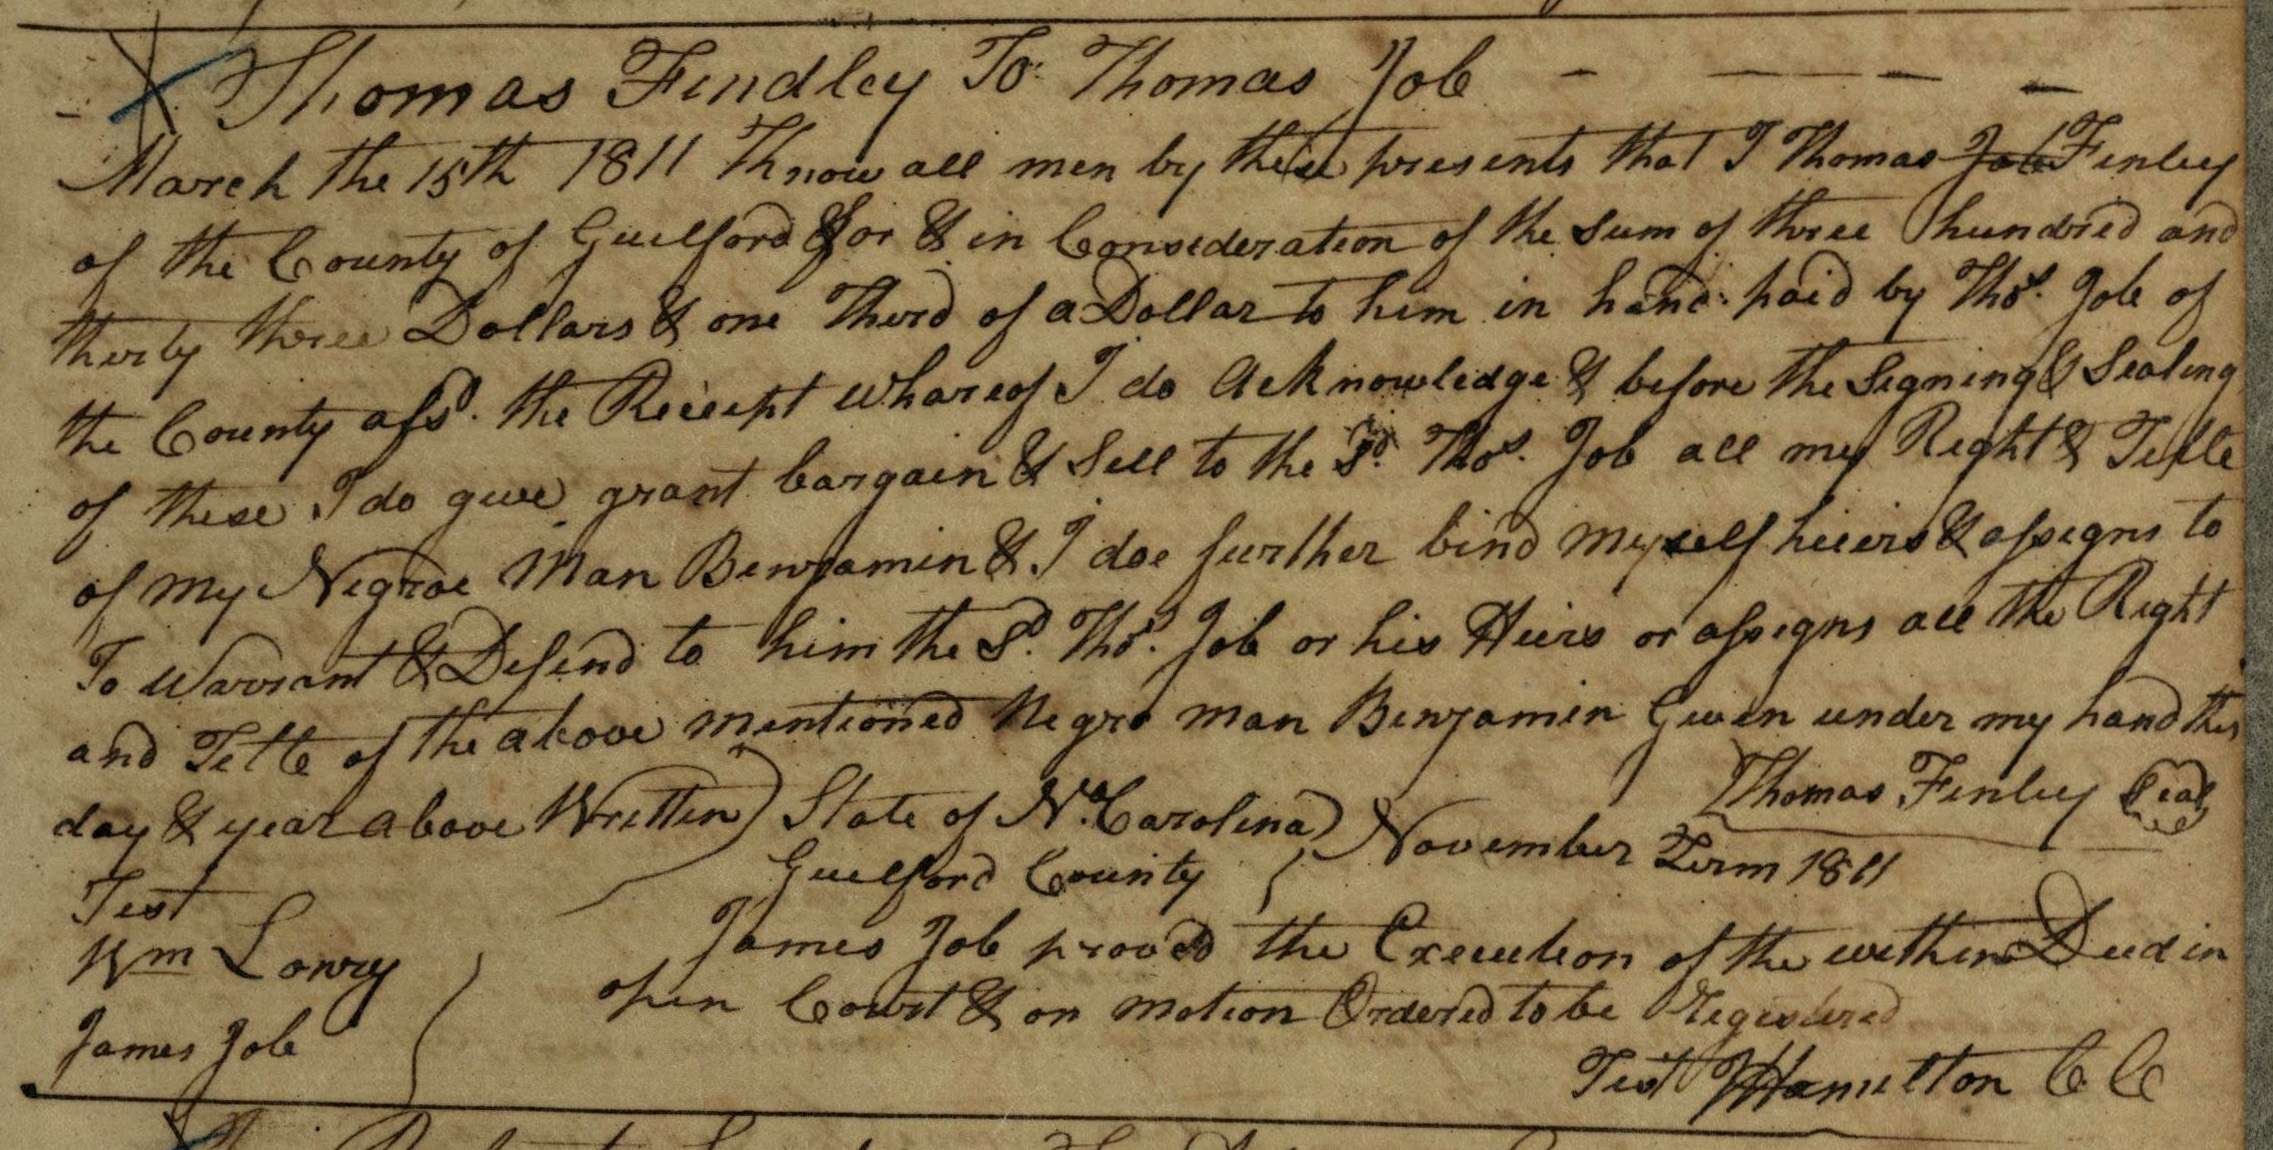 Thomas Findley To Thomas Job
March the 15th 1811 Know all men by these presents that I Thomas Job Finley
of the County of Guilford for & in Consideration of the Sum of three hundred and
thirty three Dollars & one Third of a Dollar to him in hand paid by Thos. Job of
the County afsd. the Reciept whareof I do acknowledge & before the Signing & Sealing
of these I do give grant bargain & Sell to the Sd. Thos. Job all my Right & Title
of my Negroe Man Benjamin & I doe further bind myself hieirs & assigns to
To Warrant & Defend to him the Sd. Thos. Job or his Heirs or assigns all the Right
and Title of the above mentioned Negro man Benjamin Given under my hand this
day & year above Written
Thomas Finley Seal
Test
Wm Lowry
James Job
State of No. Carolina
Guilford County
November Term 1811
James Job proved the Execution of the within Deed in
open Court & on motion Ordered to be Registered
Test Hamilton C C